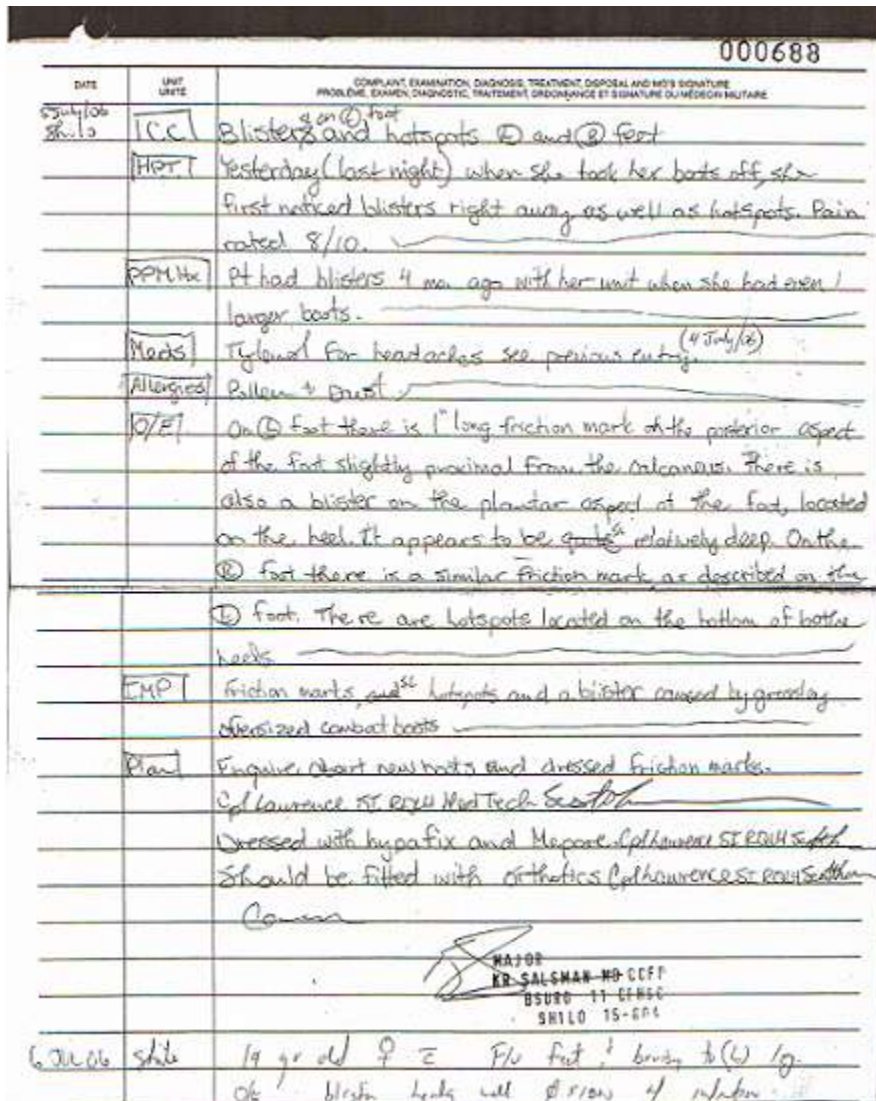 000688
DATE UNIT UNITÉ COMPLAINT, EXAMINATION, DIAGNOSIS, TREATMENT, DISPOSAL AND MO'S SIGNATURE
PROBLÈME, EXAMEN, DIAGNOSTIC, TRAITEMENT, ORDONNANCE ET SIGNATURE DU MÉDECIN MILITAIRE
5 July/06
Shilo CC Blisters on Ⓛ foot and hotspots Ⓛ and Ⓡ feet
HPI Yesterday (last night) when she took her boots off, she
first noticed blisters right away as well as hotspots. Pain
rated 8/10.
PPMHx Pt had blisters 4 mo. ago with her unit when she had even
larger boots.
Meds Tylenol for headaches see previous entry. (4 July/06)
Allergies Pollen + Dust
O/E On Ⓛ foot there is 1" long friction mark on the posterior aspect
of the foot slightly proximal from the calcaneus. There is
also a blister on the plantar aspect of the foot, located
on the heel. It appears to be quite relatively deep. On the
Ⓡ foot there is a similar friction mark as described on the
Ⓛ foot. There are hotspots located on the bottom of both
heels
IMP Friction marks, and hotspots and a blister caused by
oversized combat boots
Plan Enquire about new boots and dressed friction marks.
Cpl Lawrence Med Tech
Dressed with hypafix and Mepore. Cpl Lawrence
Should be fitted with orthotics Cpl Lawrence
MAJOR
KR SALSMAN MD CCFP
BSURG 11
SHILO
6 JUL 06 Shilo 19 yr old ♀ F/U feet
O/E blister well Ø sign of